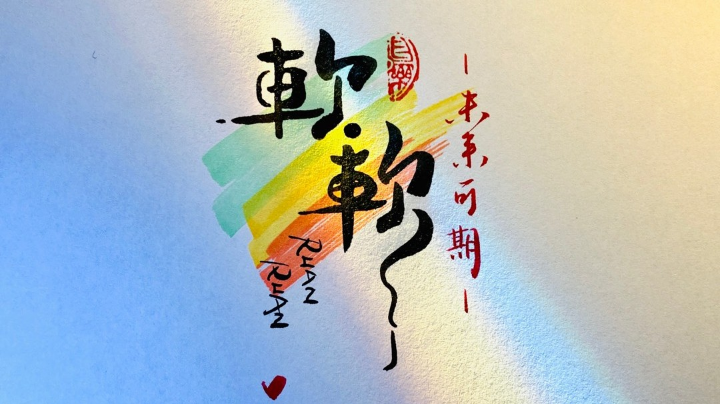 軟軟
RUAN
RUAN
－未来可期－